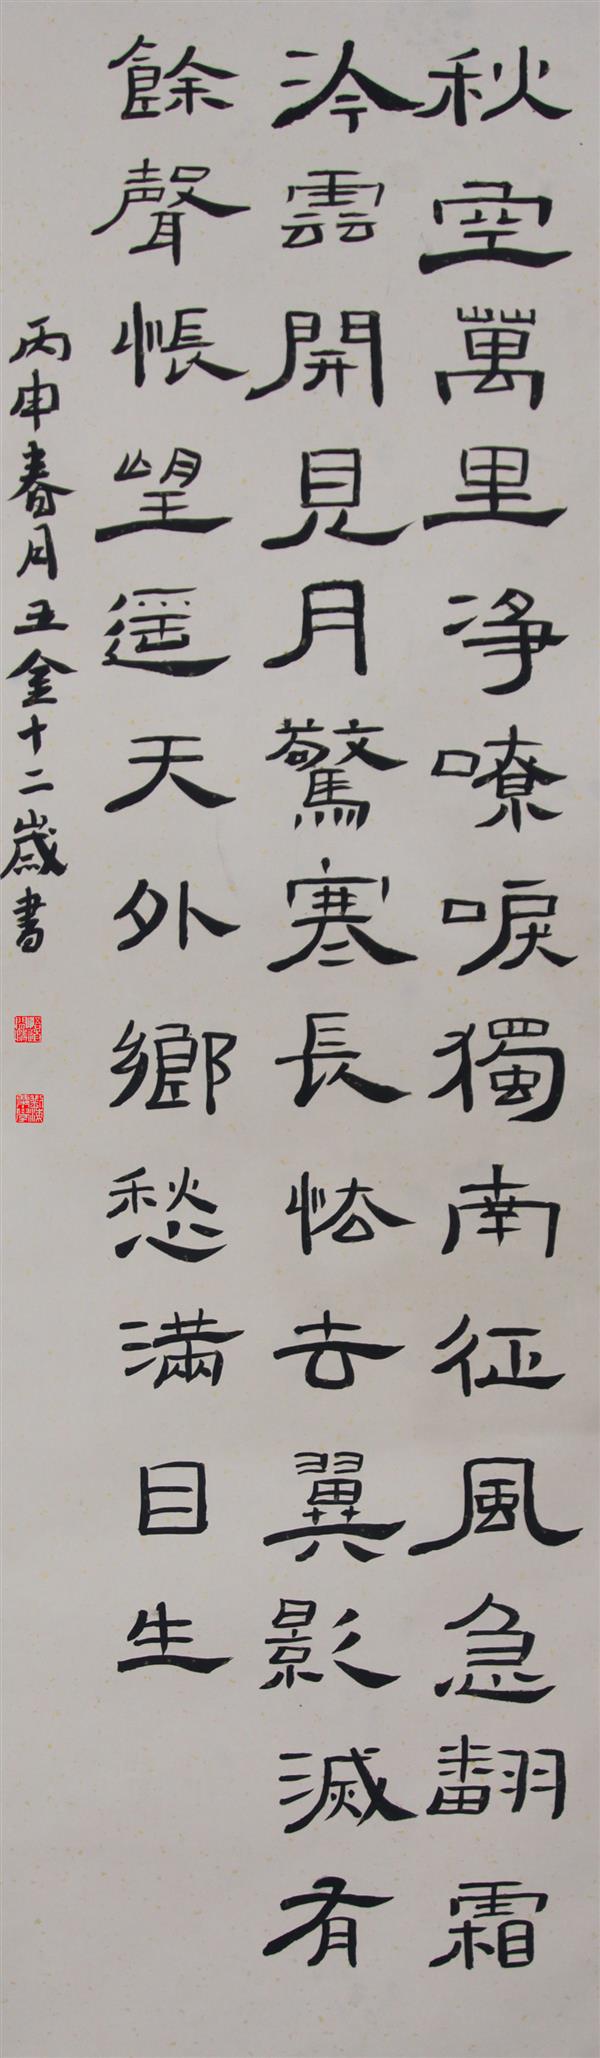 秋空萬里凈嘹唳獨南征風急翻霜
冷雲開見月驚寒長怯去翼影滅有
餘聲悵望遥天外鄉愁滿目生
丙申春月王金十二歲書